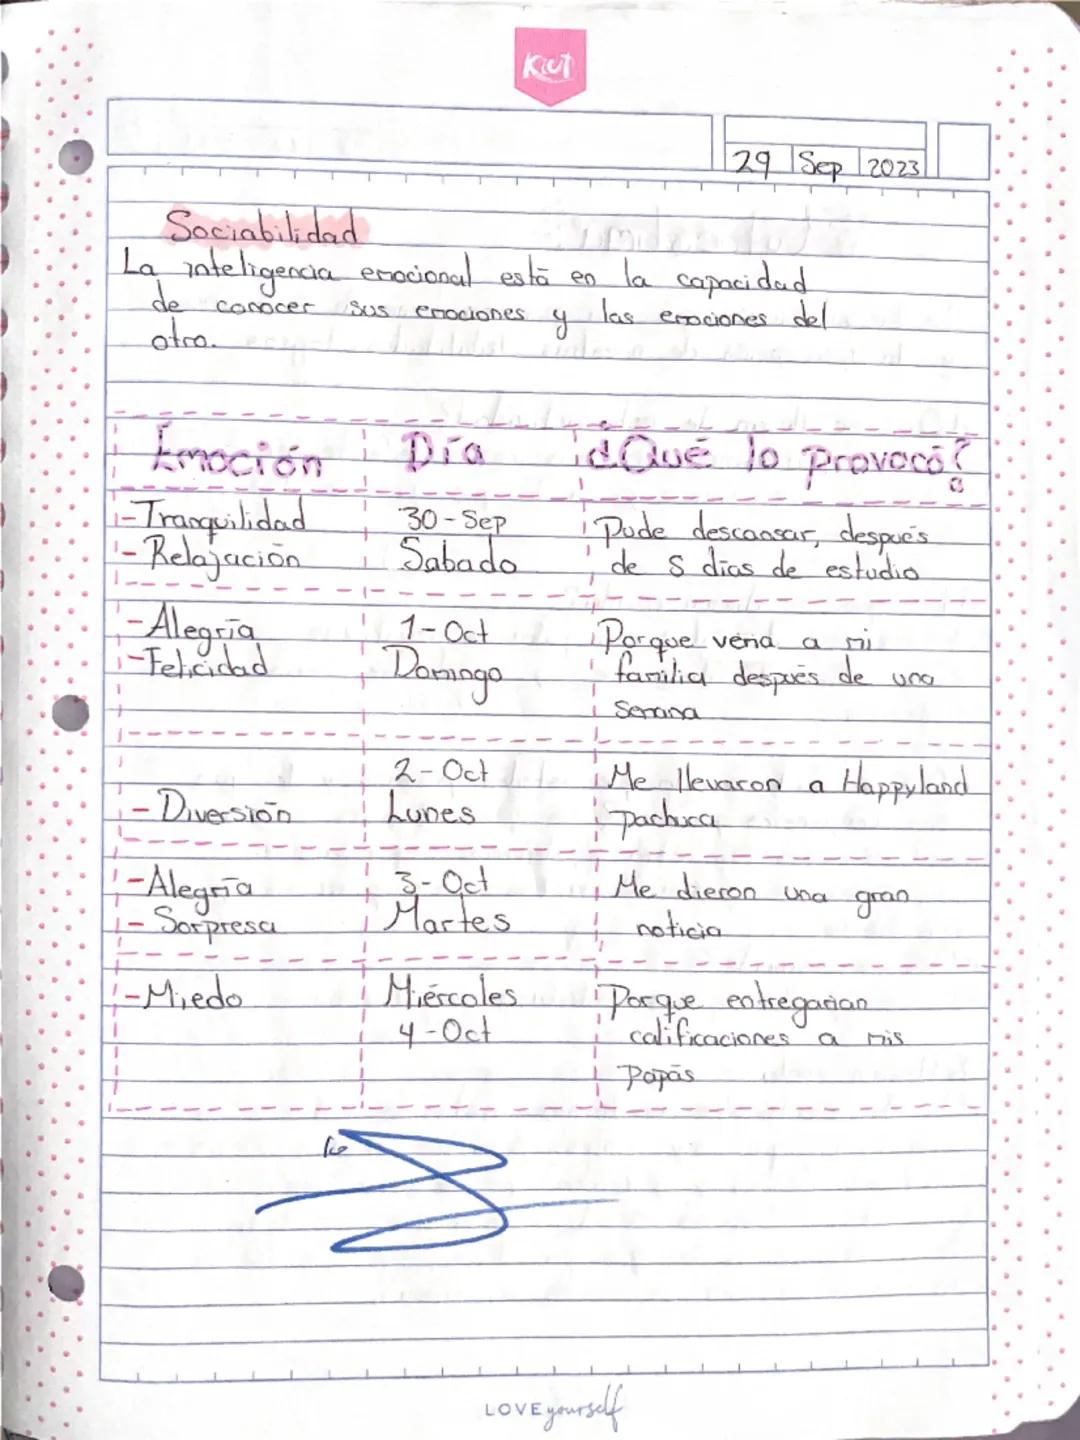 Kiut
29 Sep 2023
Sociabilidad
La inteligencia emocional está en la capacidad
de conocer sus emociones y las emociones del
otro.
Emoción Día ¿Qué lo provocó?
-Tranquilidad 30-Sep Pude descansar, después
-Relajación Sabado de 5 días de estudio
-Alegría 1-Oct Porque vería a mi
-Felicidad Domingo familia después de una
semana
2-Oct Me llevaron a Happyland
-Diversión Lunes pachuca
-Alegría 3-Oct Me dieron una gran
-Sorpresa Martes noticia
-Miedo Miércoles Porque entregarían
4-Oct calificaciones a mis
Papás
LOVE yourself